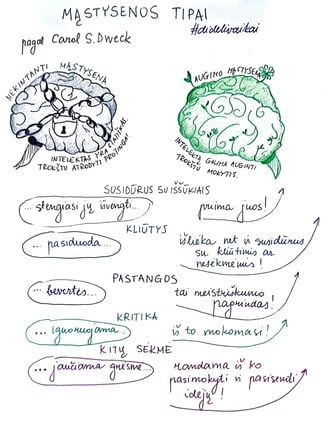 MĄSTYSENOS TIPAI
pagal Carol S. Dweck
#didelivaikai
NEKINTANTI MĄSTYSENA
AUGIMO MĄSTYSENA
INTELEKTAS YRA STATIŠKAS.
TROKŠTU ATRODYTI PROTINGAI.
INTELEKTĄ GALIMA AUGINTI
TROKŠTU MOKYTIS.
SUSIDŪRUS SU IŠŠŪKIAIS
... stengiasi jų išvengti...
priima juos!
KLIŪTYS
... pasiduoda...
išlieka net ir susidūrus
su kliūtimis ar
nesėkmėmis!
PASTANGOS
... bevertės...
tai meistriškumo
pagrindas!
KRITIKA
... ignoruojama...
iš to mokomasi!
KITŲ SĖKMĖ
... jaučiama grėsmė...
randama iš ko
pasimokyti ir pasisemti
idėjų!